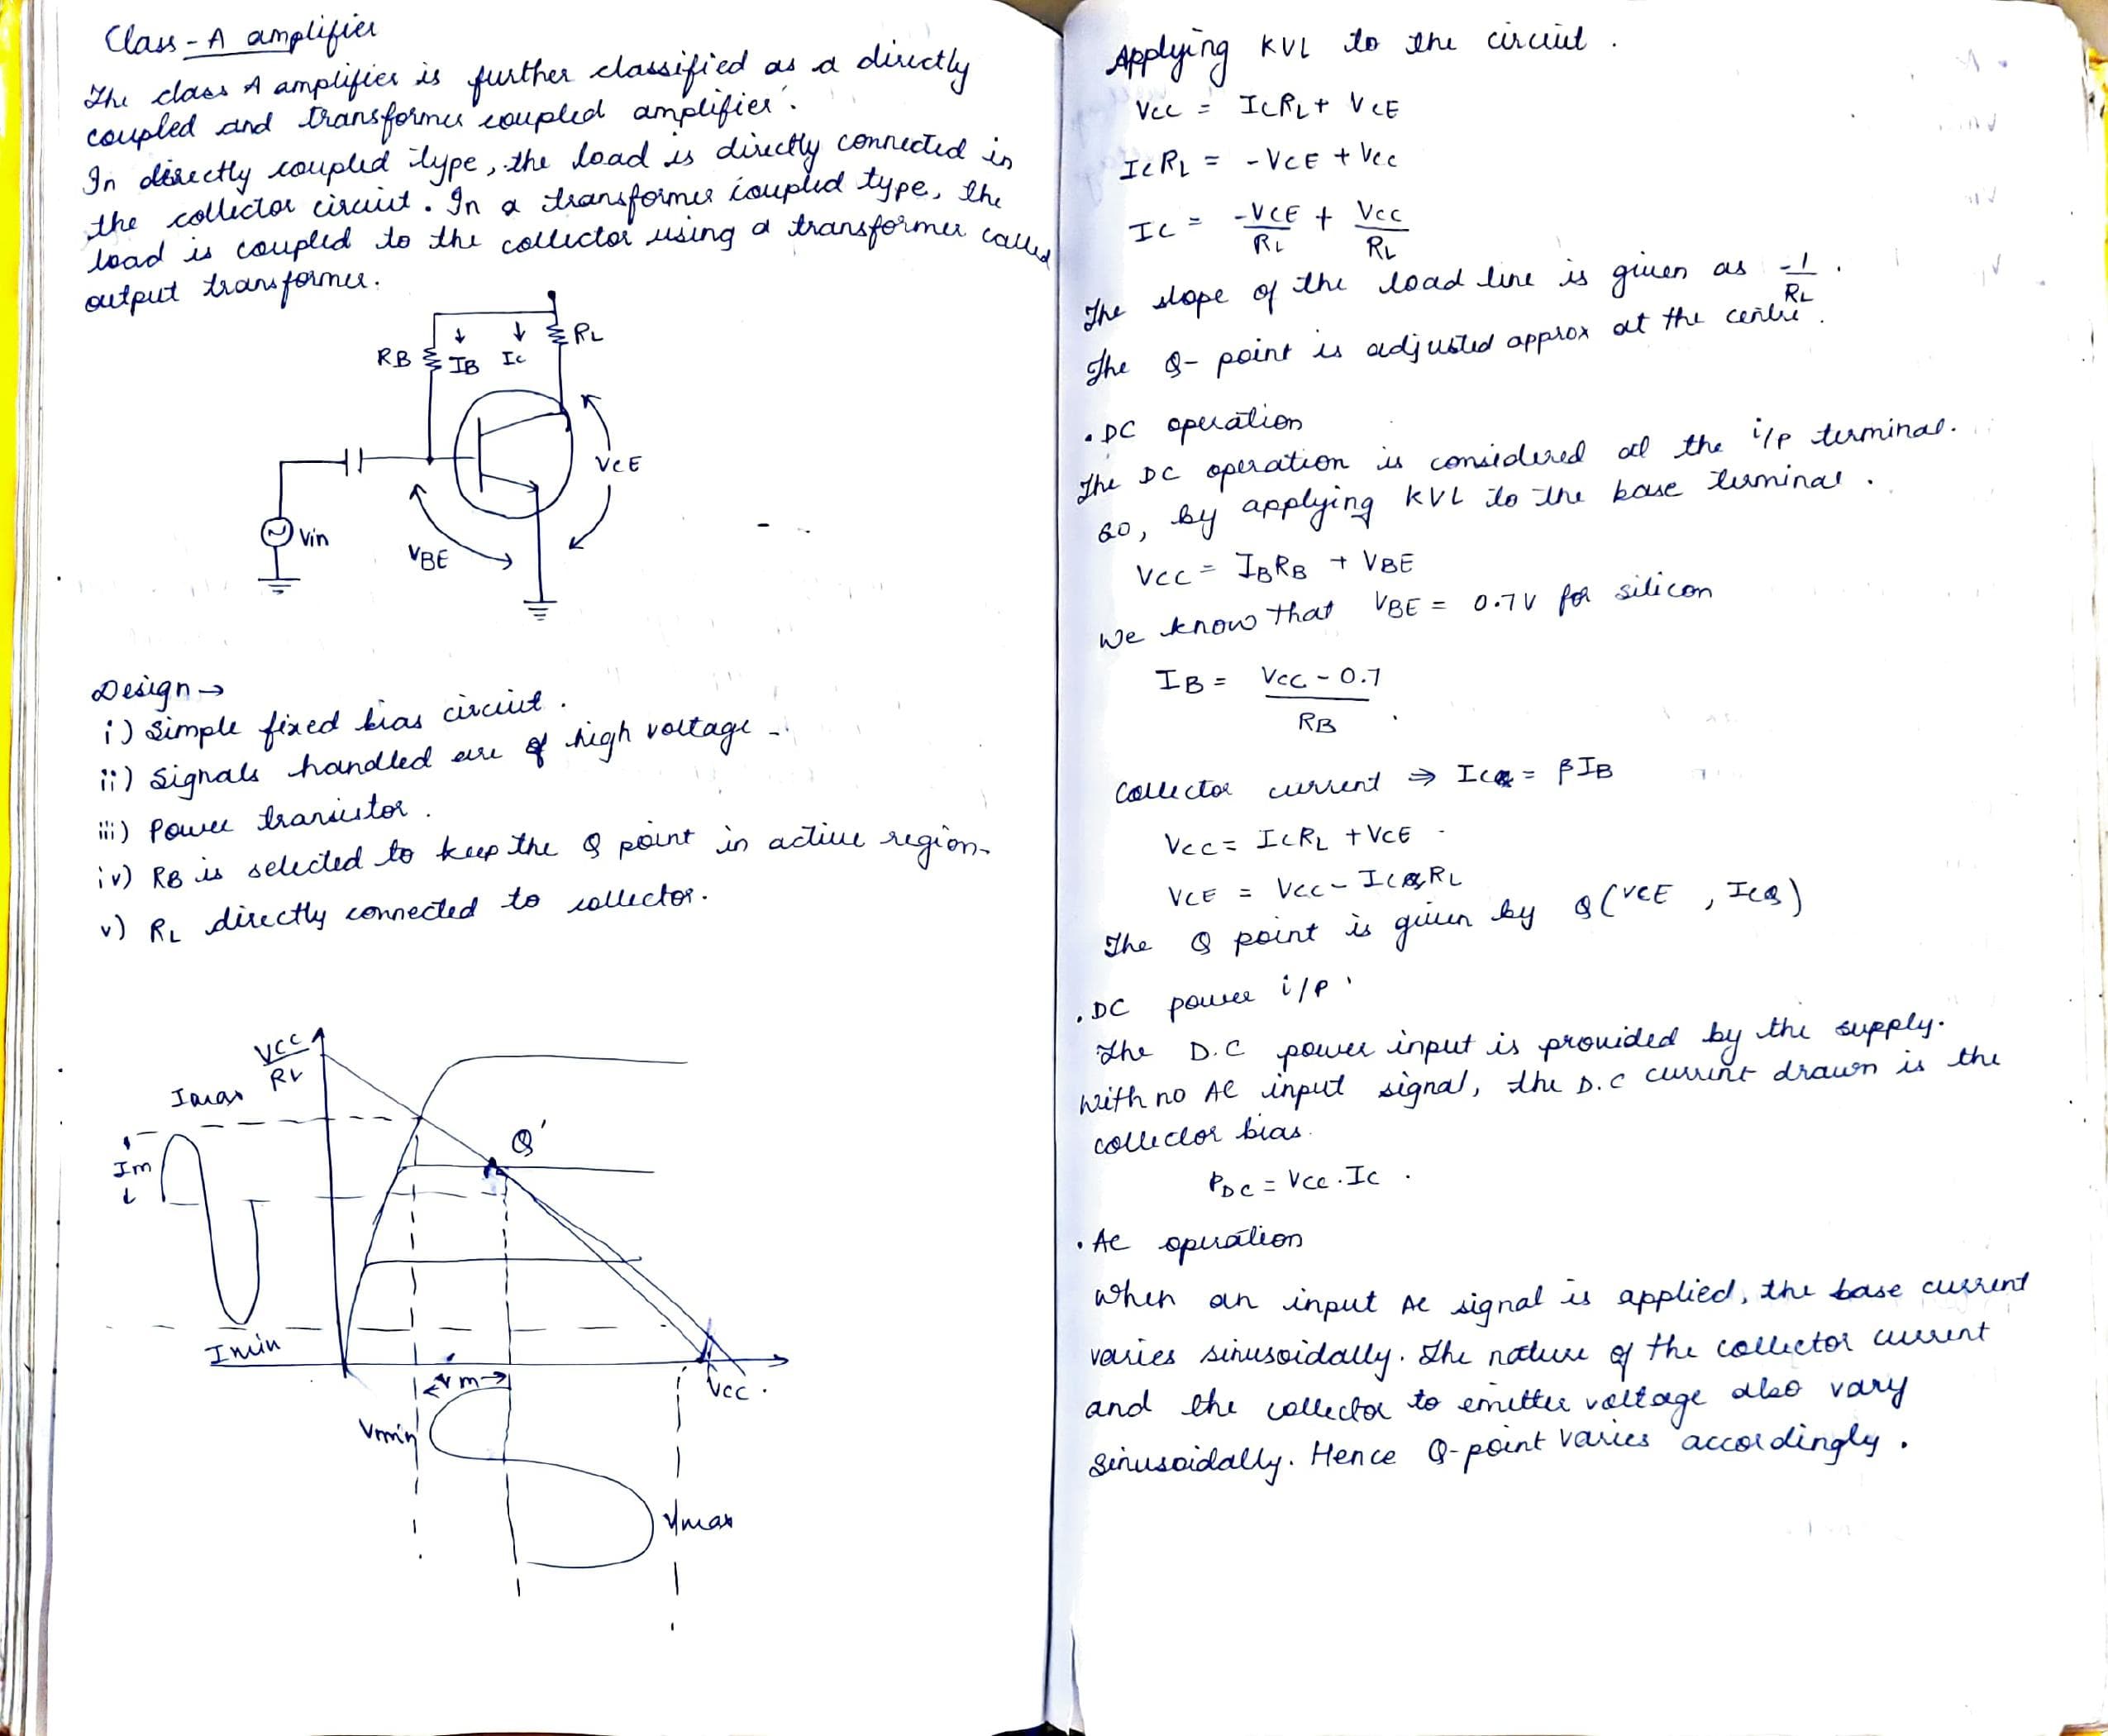 Class-A amplifier
The class A amplifier is further classified as a directly
coupled and transformer coupled amplifier.
In directly coupled type, the load is directly connected in
the collector circuit. In a transformer coupled type, the
load is coupled to the collector using a transformer called
output transformer.
RB IB Ic RL
VCE
Vin
VBE
Design →
i) Simple fixed bias circuit.
ii) Signals handled are of high voltage
iii) Power transistor.
iv) RB is selected to keep the Q point in active region.
v) RL directly connected to collector.
Vcc
RL
Imax
Q'
Im
Imin
Vm
Vcc.
Vmin
Vmax
Applying KVL to the circuit.
Vcc = ICRL + VCE
ICRL = -VCE + Vcc
IC = -VCE/RL + Vcc/RL
The slope of the load line is given as -1/RL.
The Q-point is adjusted approx at the centre.
• DC operation
The DC operation is considered at the i/p terminal.
so, by applying KVL to the base terminal.
Vcc = IBRB + VBE
We know that VBE = 0.7V for silicon
IB = Vcc - 0.7
RB
Collector current ⇒ ICQ = βIB
Vcc = ICRL + VCE
VCE = Vcc - ICQRL
The Q point is given by Q(VCE, ICQ)
• DC power i/p
The D.C power input is provided by the supply.
With no AC input signal, the D.C current drawn is the
collector bias.
PDC = Vcc.Ic.
• AC operation
When an input AC signal is applied, the base current
varies sinusoidally. The nature of the collector current
and the collector to emitter voltage also vary
sinusoidally. Hence Q-point varies accordingly.